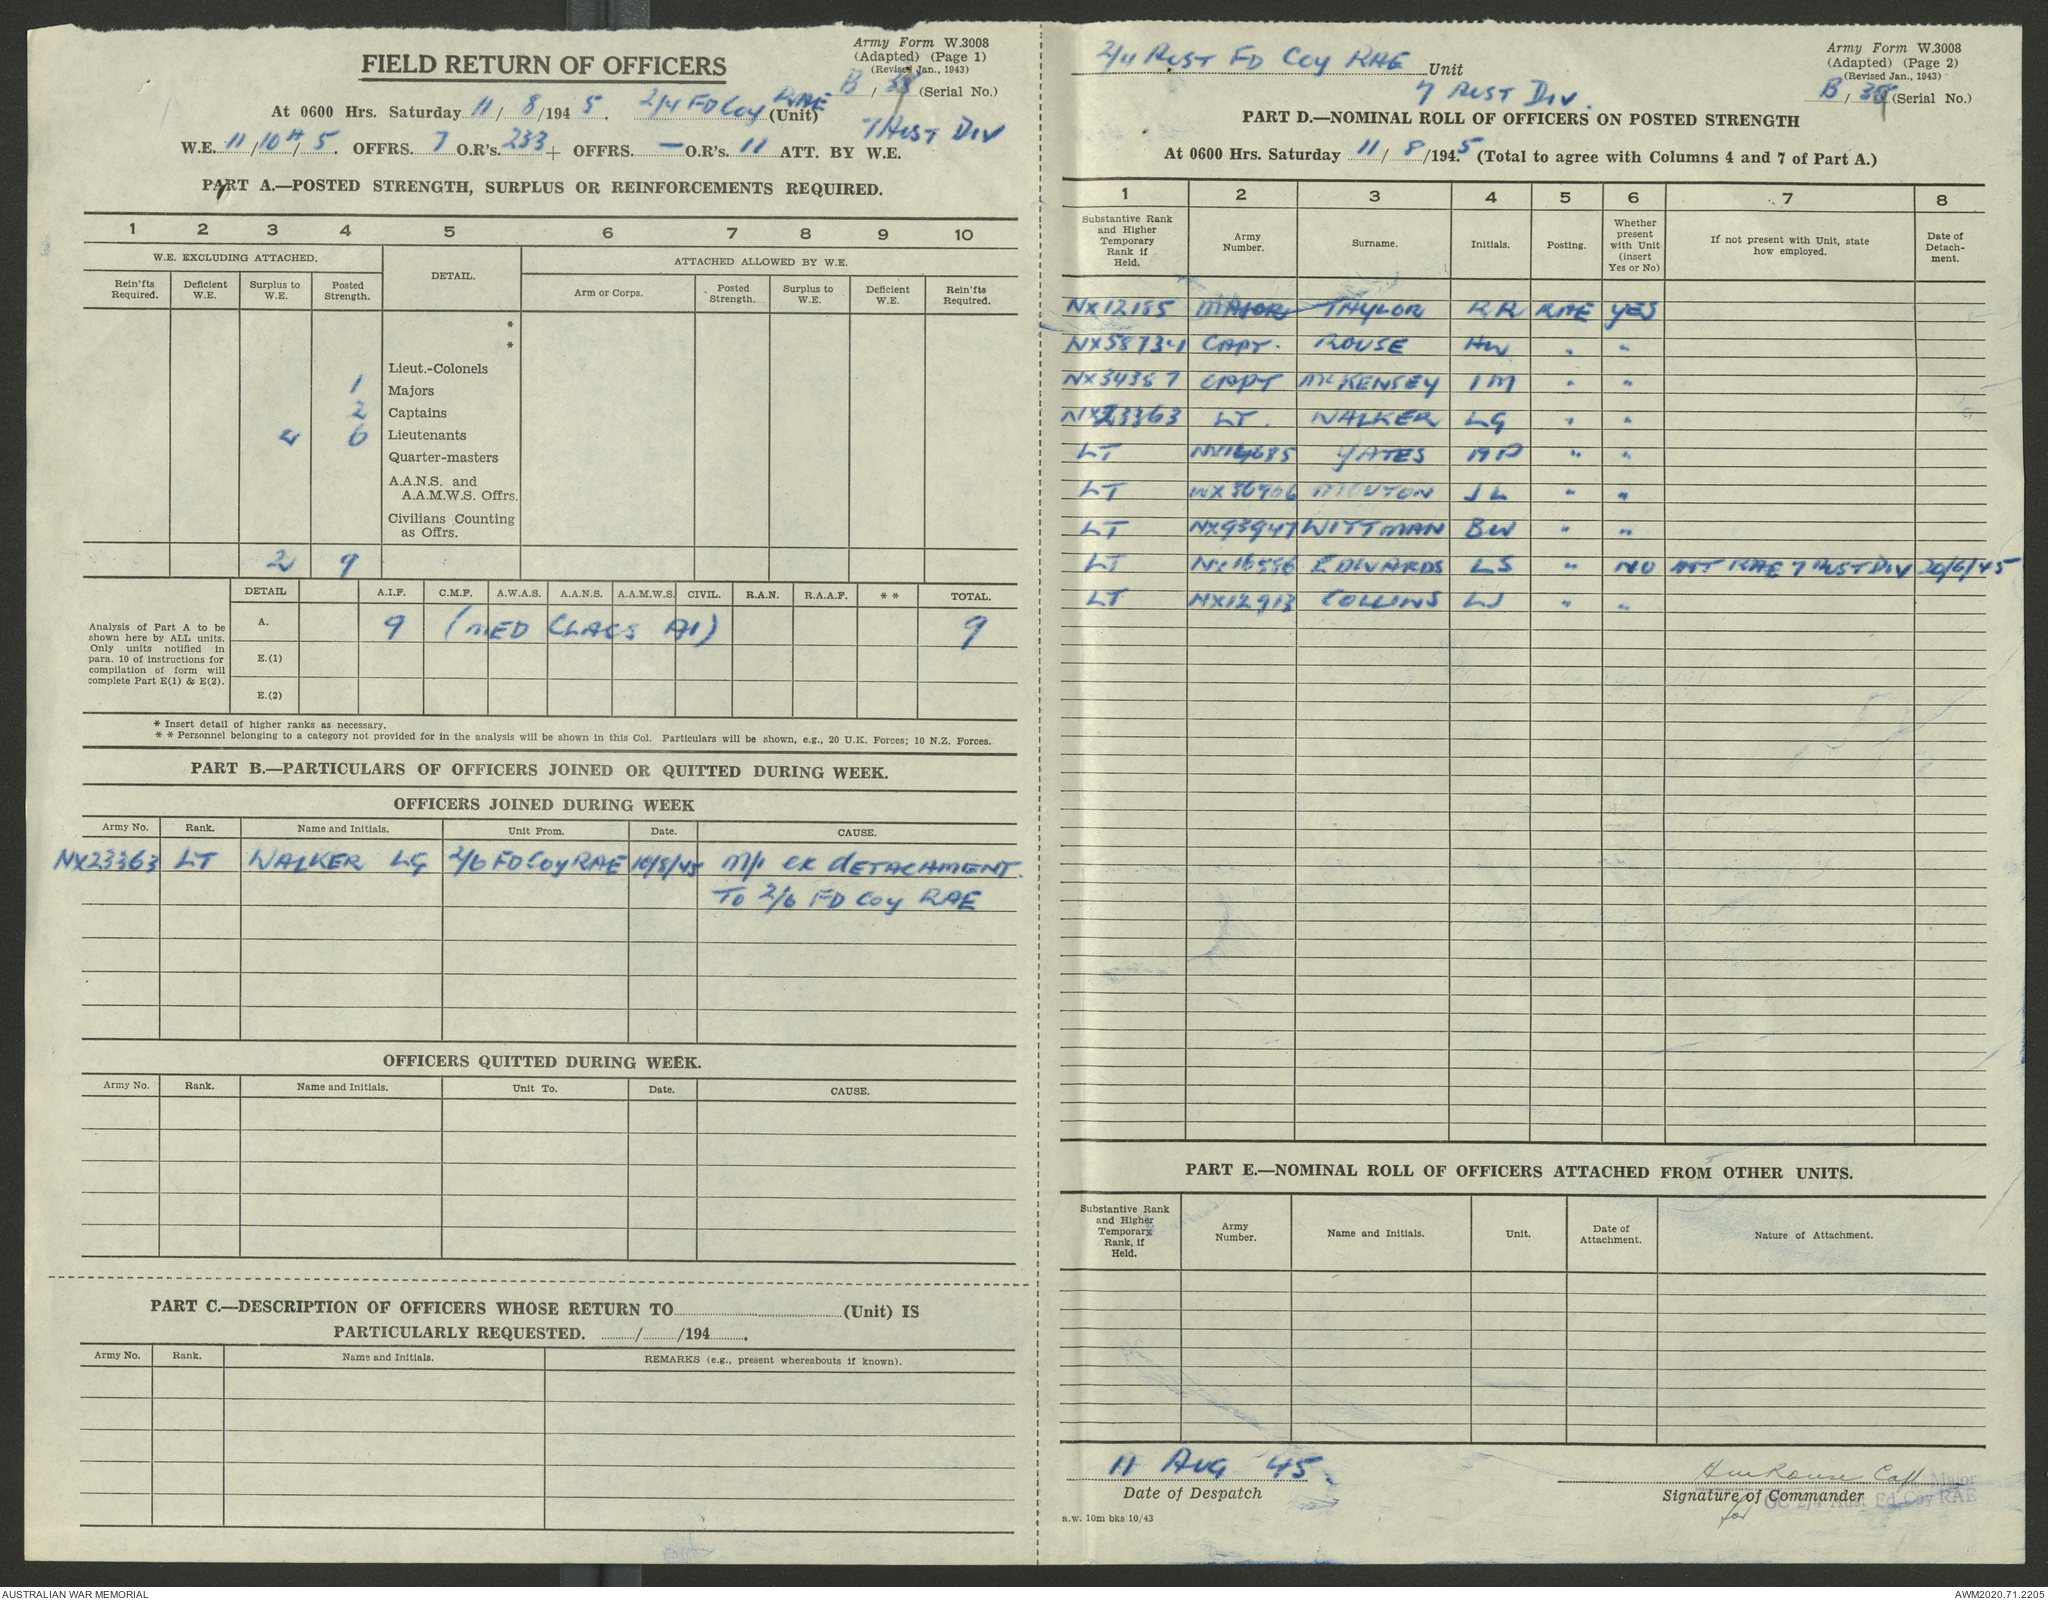 FIELD RETURN OF OFFICERS
Army Form W.3008
(Adapted) (Page 1)
(Revised Jan., 1943)
B / (Serial No.)
At 0600 Hrs. Saturday 11/8/1945. 2/4 FD Coy RAE (Unit)
7 Aust Div
W.E. 11/10 A/5. OFFRS. 7 O.R's. 233 + OFFRS. — O.R's. 11 ATT. BY W.E.
PART A.—POSTED STRENGTH, SURPLUS OR REINFORCEMENTS REQUIRED.
1 2 3 4 5 6 7 8 9 10
W.E. EXCLUDING ATTACHED. DETAIL. ATTACHED ALLOWED BY W.E.
Rein'fts Required. Deficient W.E. Surplus to W.E. Posted Strength. Arm or Corps. Posted Strength. Surplus to W.E. Deficient W.E. Rein'fts Required.
*
*
Lieut.-Colonels
1 Majors
2 Captains
6 Lieutenants
Quarter-masters
A.A.N.S. and
A.A.M.W.S. Offrs.
Civilians Counting
as Offrs.
2 9
DETAIL A.I.F. C.M.F. A.W.A.S. A.A.N.S. A.A.M.W.S. CIVIL. R.A.N. R.A.A.F. * * TOTAL.
Analysis of Part A to be shown here by ALL units. Only units notified in para. 10 of instructions for compilation of form will complete Part E(1) & E(2).
A. 9 (MED CLASS A1) 9
E.(1)
E.(2)
* Insert detail of higher ranks as necessary.
* * Personnel belonging to a category not provided for in the analysis will be shown in this Col. Particulars will be shown, e.g., 20 U.K. Forces; 10 N.Z. Forces.
PART B.—PARTICULARS OF OFFICERS JOINED OR QUITTED DURING WEEK.
OFFICERS JOINED DURING WEEK
Army No. Rank. Name and Initials. Unit From. Date. CAUSE.
NX23363 LT WALKER LG 2/6 FD Coy RAE 10/8/45 M/I EX DETACHMENT.
TO 2/6 FD Coy RAE
OFFICERS QUITTED DURING WEEK.
Army No. Rank. Name and Initials. Unit To. Date. CAUSE.
PART C.—DESCRIPTION OF OFFICERS WHOSE RETURN TO (Unit) IS
PARTICULARLY REQUESTED. / /194 .
Army No. Rank. Name and Initials. REMARKS (e.g., present whereabouts if known).
2/4 Aust FD Coy RAE Unit
7 Aust Div.
Army Form W.3008
(Adapted) (Page 2)
(Revised Jan., 1943)
B / (Serial No.)
PART D.—NOMINAL ROLL OF OFFICERS ON POSTED STRENGTH
At 0600 Hrs. Saturday 11/8/1945 (Total to agree with Columns 4 and 7 of Part A.)
1 2 3 4 5 6 7 8
Substantive Rank and Higher Temporary Rank if Held. Army Number. Surname. Initials. Posting. Whether present with Unit (insert Yes or No) If not present with Unit, state how employed. Date of Detachment.
NX12185 MAJOR TAYLOR RR RAE YES
NX58734 CAPT. ROUSE HW " "
NX34357 CAPT McKENSEY IM " "
NX23363 LT. WALKER LG " "
LT YATES " "
LT JL " "
LT NX93947 WITTMAN BW " "
LT EDWARDS LS " NO ATT RAE 7 AUST DIV 20/6/45
LT NX12913 COLLINS LJ " "
PART E.—NOMINAL ROLL OF OFFICERS ATTACHED FROM OTHER UNITS.
Substantive Rank and Higher Temporary Rank, if Held. Army Number. Name and Initials. Unit. Date of Attachment. Nature of Attachment.
11 Aug '45.
Date of Despatch
HW Rouse Capt
Major
Signature of Commander
OC 2/4 Aust Fd Coy RAE
for
a.w. 10m bks 10/43
AUSTRALIAN WAR MEMORIAL
AWM2020.71.2205